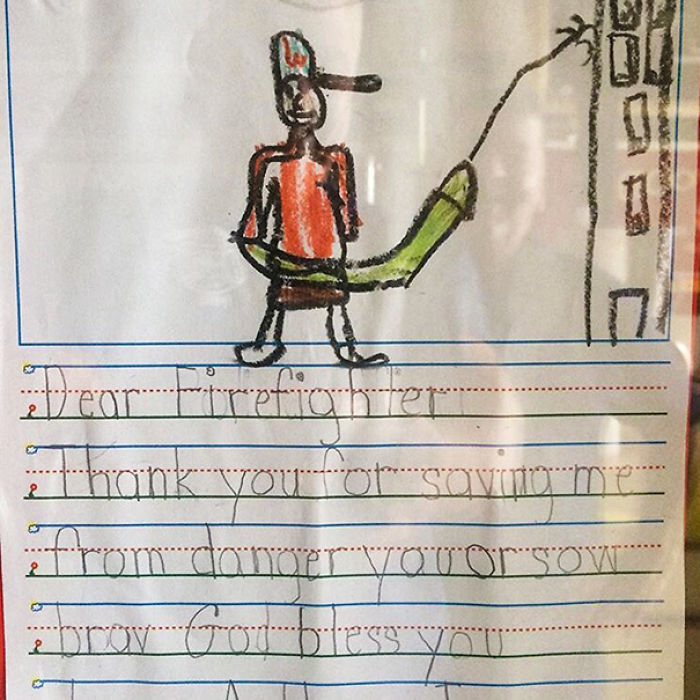 Dear Firefighter
Thank you for saving me
from danger youor sow
brav God bless you